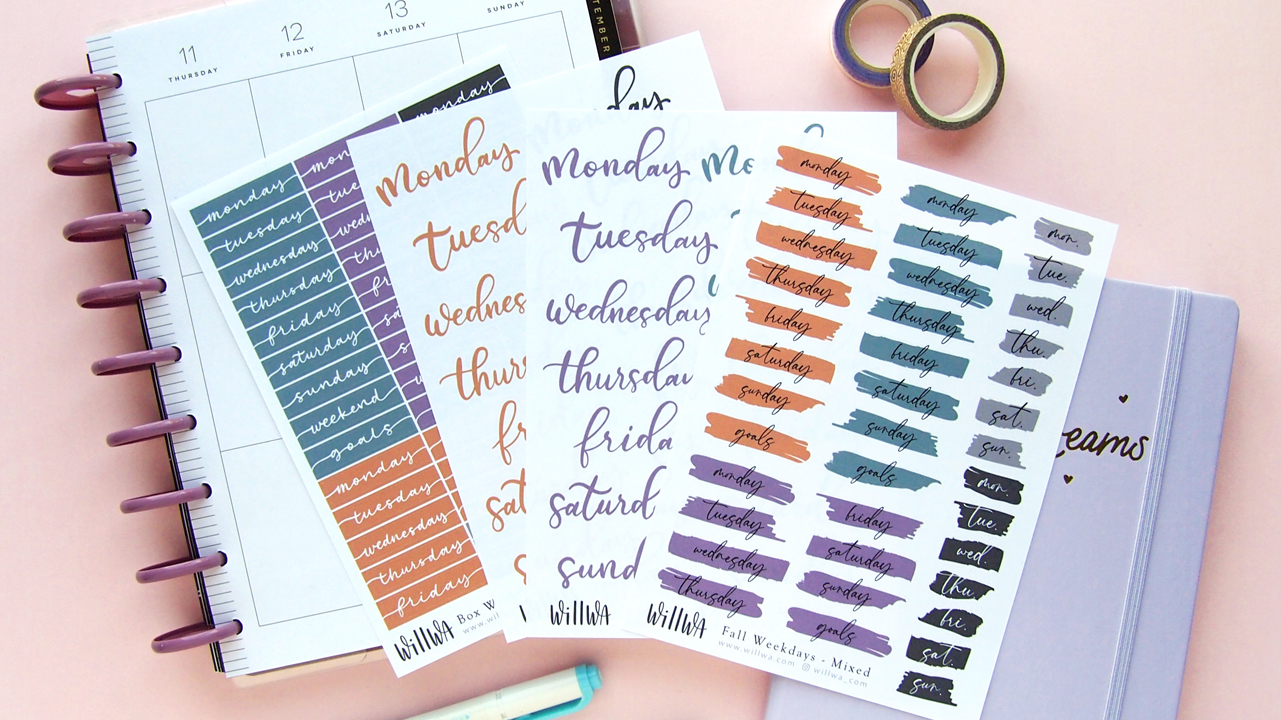 11
THURSDAY
12
FRIDAY
13
SATURDAY
SUNDAY
monday
tuesday
wednesday
thursday
friday
saturday
sunday
weekend
goals
monday
tuesday
wednesday
thursday
friday
willwa
monday
Monday
monday
tuesday
wednesday
thursday
friday
saturday
sunday
willwa
monday
tuesday
wednesday
thursday
friday
saturday
sunday
goals
monday
tuesday
wednesday
thursday
monday
tuesday
wednesday
thursday
friday
saturday
sunday
goals
friday
saturday
sunday
goals
mon.
tue.
wed.
thu.
fri.
sat.
sun.
mon.
tue.
wed.
thu.
fri.
sat.
sun.
willwa
Fall Weekdays - Mixed
www.willwa.com willwa_com
eams